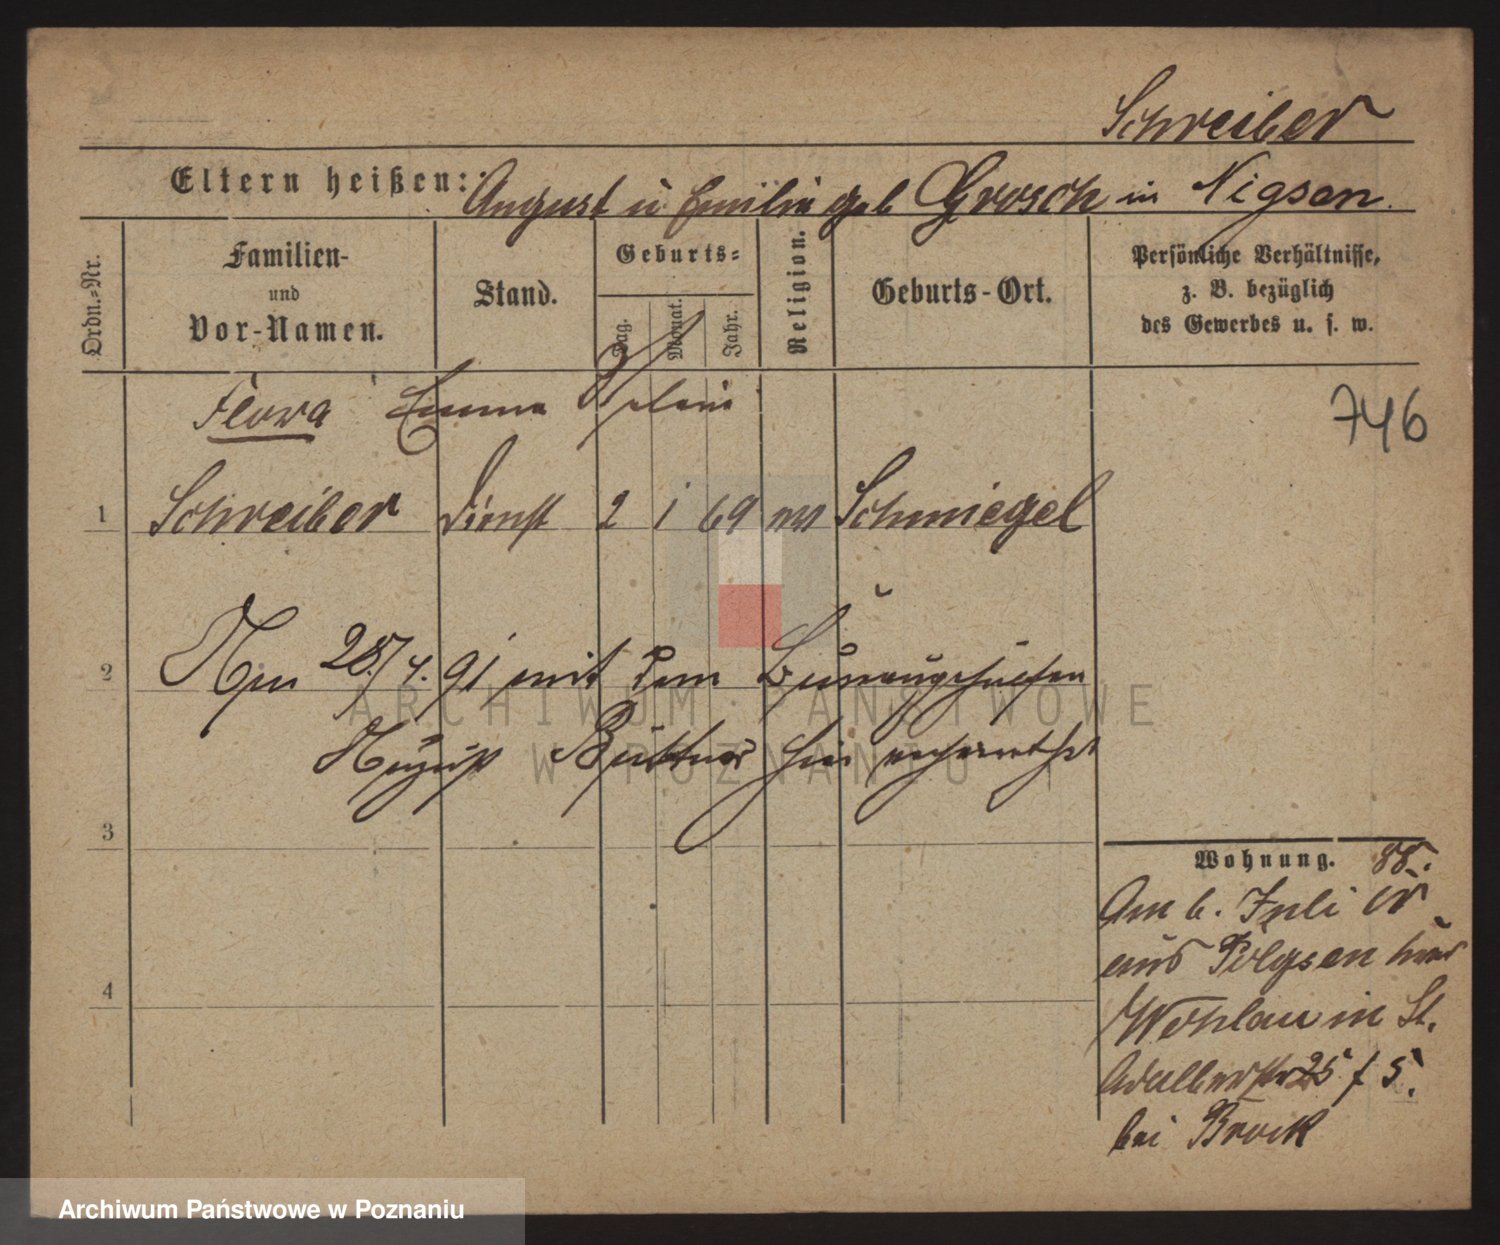 Schreiber
Eltern heißen: August u Emilie geb Grosch in Nigsen.
Ordn.-Nr.
Familien- und Vor-Namen.
Stand.
Geburts-
Tag.
Monat.
Jahr.
Religion.
Geburts-Ort.
Persönliche Verhältnisse, z. B. bezüglich des Gewerbes u. s. w.
Flora Emma
746
1 Schreiber Dienst 2 1 69 Schmiegel
2 Am 28/4. 91 mit dem
August Büttner hier verheirathet
3
4
Wohnung. 88.
Am 6. Juli cr
aus Polgsen
Wohlau in St.
Adalbertstr 25 f 5.
bei Brock
ARCHIWUM PAŃSTWOWE
W POZNANIU
Archiwum Państwowe w Poznaniu